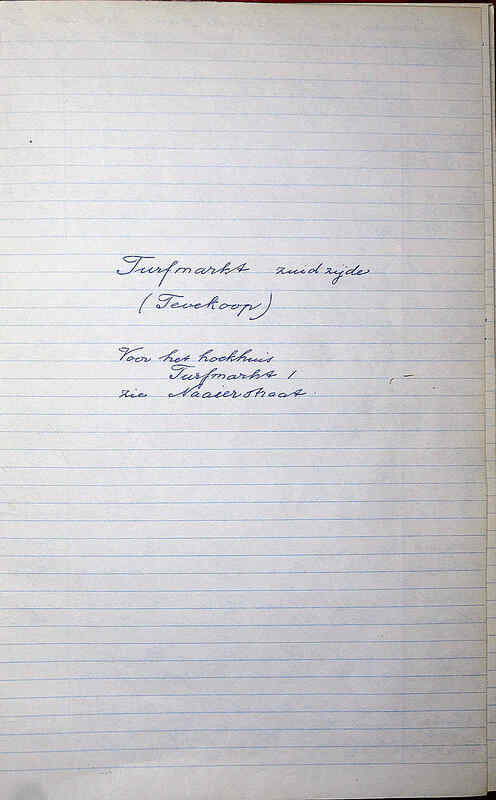 Turfmarkt zuidzijde
(Tevekoop)
Voor het hoekhuis
Turfmarkt 1
zie Naaierstraat.